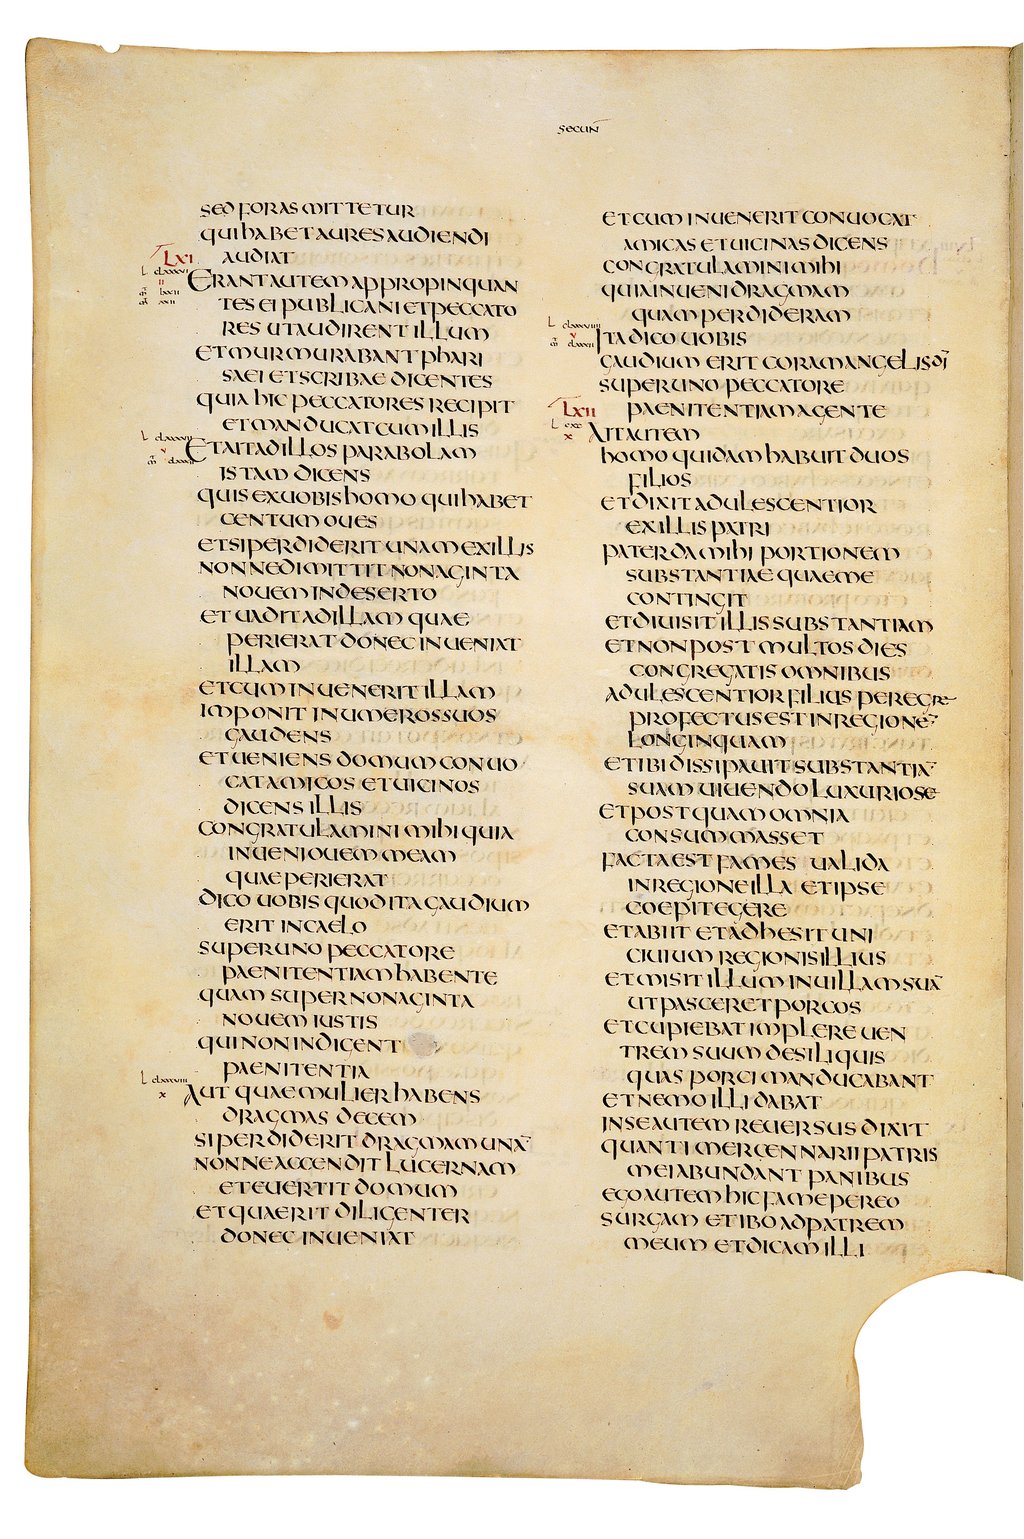 SECUN̄
SED FORAS MITTETUR
QUI HABET AURES AUDIENDI
AUDIAT
LXI
L CLXXXVI
II
M LXXII
M XXII
ERANT AUTEM APPROPINQUAN
TES EI PUBLICANI ET PECCATO
RES UT AUDIRENT ILLUM
ET MURMURABANT PHARI
SAEI ET SCRIBAE DICENTES
QUIA HIC PECCATORES RECIPIT
ET MANDUCAT CUM ILLIS
L CLXXXVII
V
M CLXXXII
ET AIT AD ILLOS PARABOLAM
ISTAM DICENS
QUIS EX UOBIS HOMO QUI HABET
CENTUM OUES
ET SI PERDIDERIT UNAM EX ILLIS
NONNE DIMITTIT NONAGINTA
NOUEM IN DESERTO
ET UADIT AD ILLAM QUAE
PERIERAT DONEC INUENIAT
ILLAM
ET CUM INUENERIT ILLAM
IMPONIT IN UMEROS SUOS
GAUDENS
ET UENIENS DOMUM CONUO
CAT AMICOS ET UICINOS
DICENS ILLIS
CONGRATULAMINI MIHI QUIA
INUENI OUEM MEAM
QUAE PERIERAT
DICO UOBIS QUOD ITA GAUDIUM
ERIT IN CAELO
SUPER UNO PECCATORE
PAENITENTIAM HABENTE
QUAM SUPER NONAGINTA
NOUEM IUSTIS
QUI NON INDIGENT
PAENITENTIA
L CLXXXVIII
X
AUT QUAE MULIER HABENS
DRAGMAS DECEM
SI PERDIDERIT DRAGMAM UNĀ
NONNE ACCENDIT LUCERNAM
ET EUERTIT DOMUM
ET QUAERIT DILIGENTER
DONEC INUENIAT
ET CUM INUENERIT CONUOCAT
AMICAS ET UICINAS DICENS
CONGRATULAMINI MIHI
QUIA INUENI DRAGMAM
QUAM PERDIDERAM
L CLXXXVIIII
V
M CLXXXII
ITA DICO UOBIS
GAUDIUM ERIT CORAM ANGELIS DĪ
SUPER UNO PECCATORE
PAENITENTIAM AGENTE
LXII
L CXC
X
AIT AUTEM
HOMO QUIDAM HABUIT DUOS
FILIOS
ET DIXIT ADULESCENTIOR
EX ILLIS PATRI
PATER DA MIHI PORTIONEM
SUBSTANTIAE QUAE ME
CONTINGIT
ET DIUISIT ILLIS SUBSTANTIAM
ET NON POST MULTOS DIES
CONGREGATIS OMNIBUS
ADULESCENTIOR FILIUS PEREGRE
PROFECTUS EST IN REGIONĒ
LONGINQUAM
ET IBI DISSIPAUIT SUBSTANTIĀ
SUAM UIUENDO LUXURIOSE
ET POSTQUAM OMNIA
CONSUMMASSET
FACTA EST FAMES UALIDA
IN REGIONE ILLA ET IPSE
COEPIT EGERE
ET ABIIT ET ADHESIT UNI
CIUIUM REGIONIS ILLIUS
ET MISIT ILLUM IN UILLAM SUĀ
UT PASCERET PORCOS
ET CUPIEBAT IMPLERE UEN
TREM SUUM DE SILIQUIS
QUAS PORCI MANDUCABANT
ET NEMO ILLI DABAT
IN SE AUTEM REUERSUS DIXIT
QUANTI MERCENNARII PATRIS
MEI ABUNDANT PANIBUS
EGO AUTEM HIC FAME PEREO
SURGAM ET IBO AD PATREM
MEUM ET DICAM ILLI